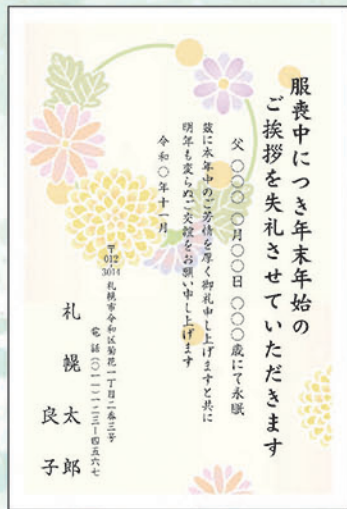 服喪中につき年末年始の
ご挨拶を失礼させていただきます
父 〇〇〇 〇月〇〇日 〇〇〇歳にて永眠
茲に本年中のご芳情を厚く御礼申し上げますと共に
明年も変らぬご交誼をお願い申し上げます
令和〇年十一月
〒012-3014 札幌市令和区菊花一丁目二番三号
電話(〇一一)一二三―四五六七
札幌太郎
良子